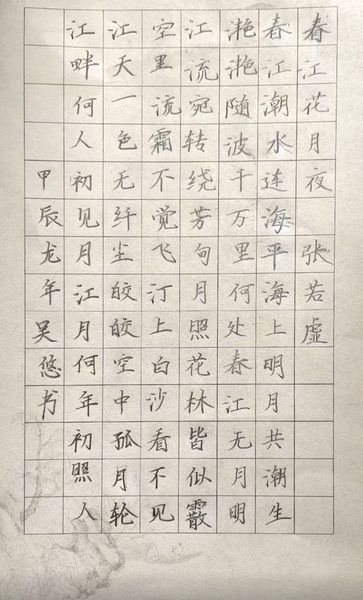 春江花月夜 张若虚
春江潮水连海平海上明月共潮生
滟滟随波千万里何处春江无月明
江流宛转绕芳甸月照花林皆似霰
空里流霜不觉飞汀上白沙看不见
江天一色无纤尘皎皎空中孤月轮
江畔何人初见月江月何年初照人
甲辰龙年吴悠书